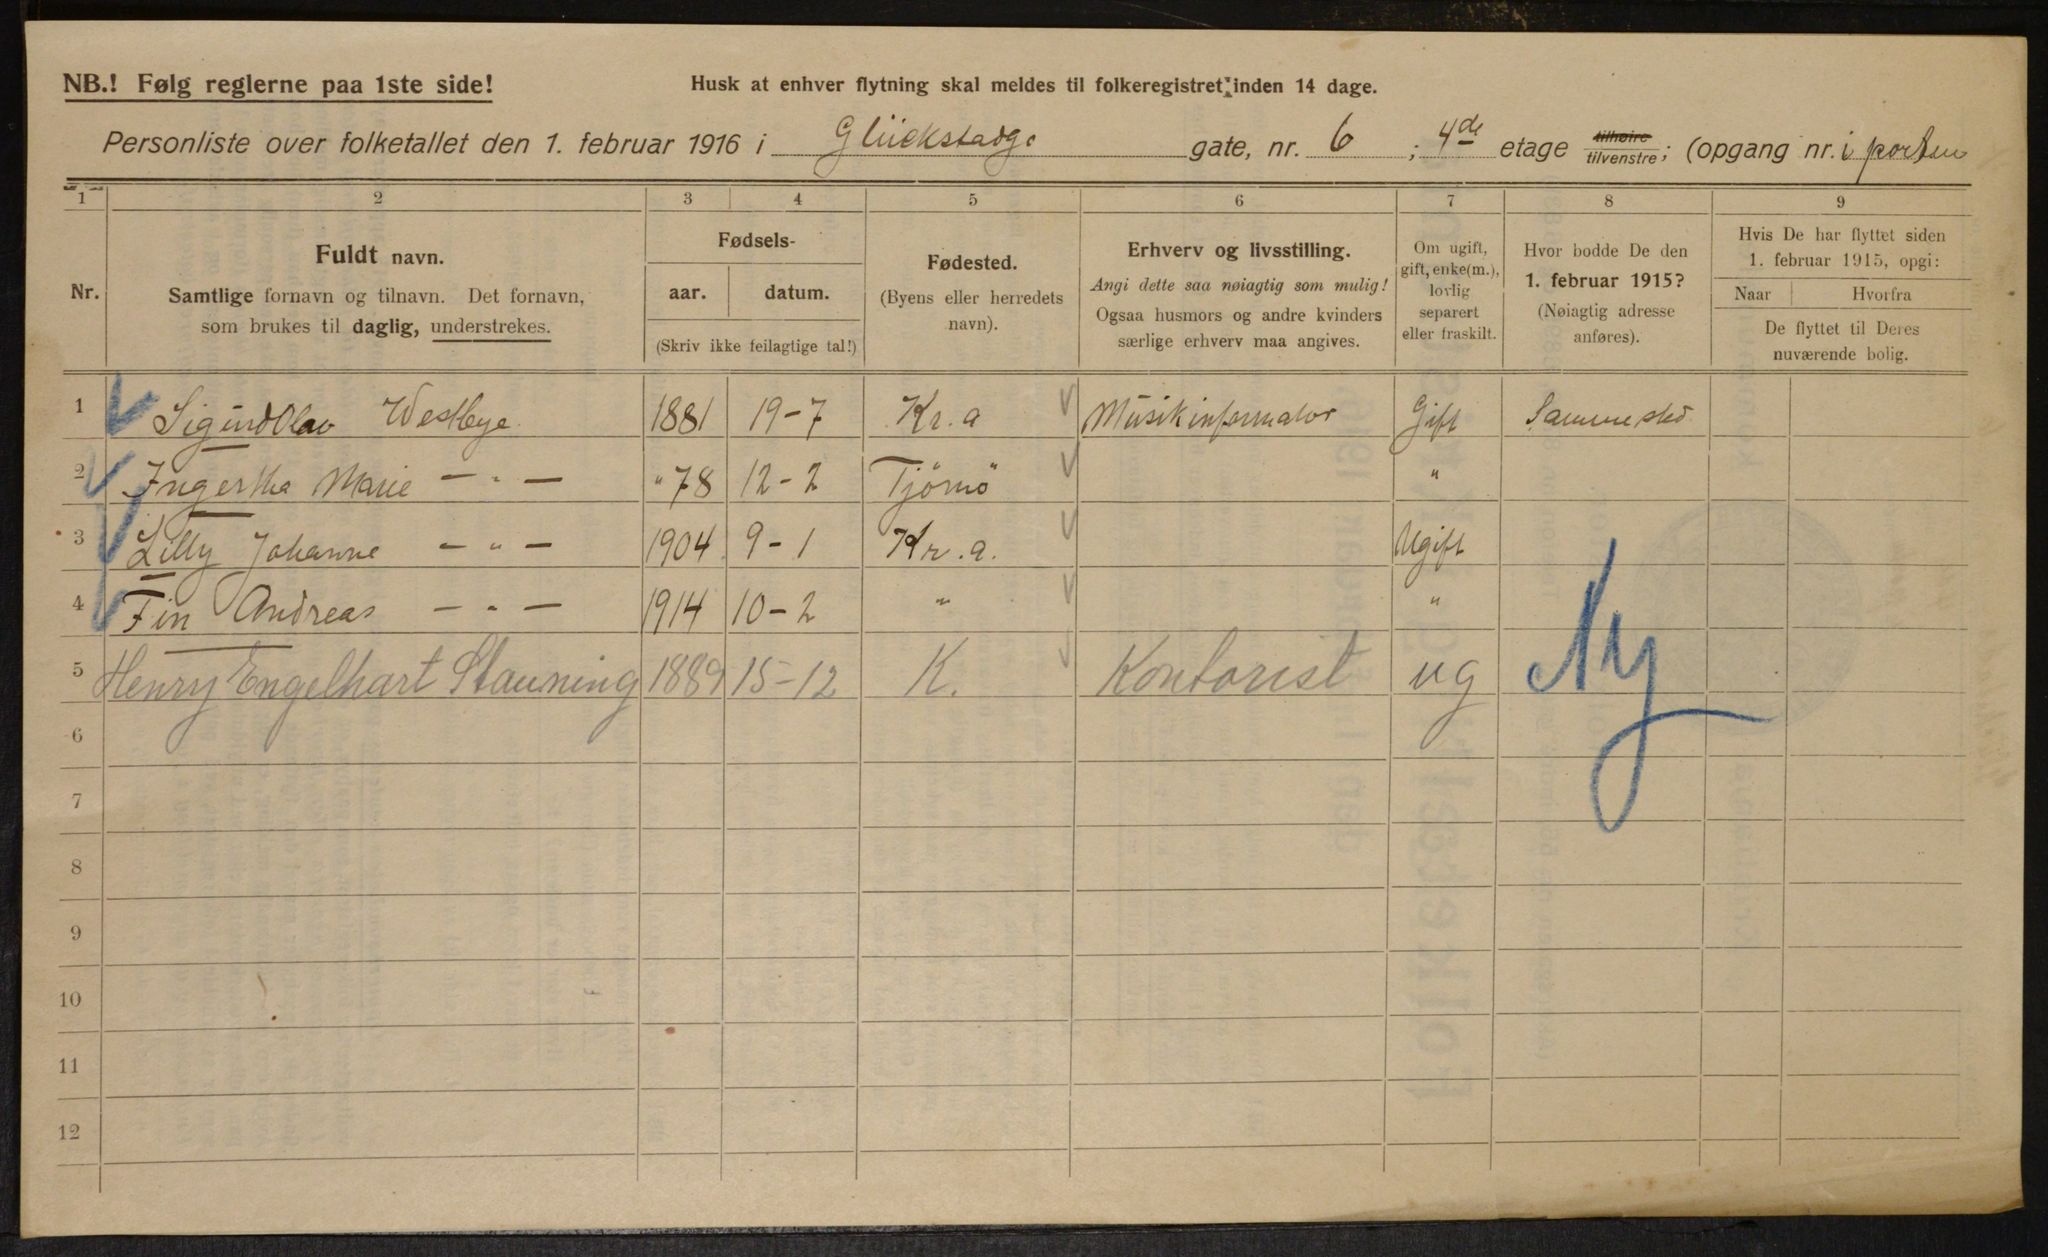 NB.! Følg reglerne paa 1ste side!
Husk at enhver flytning skal meldes til folkeregistret inden 14 dage.
Personliste over folketallet den 1. februar 1916 i Glückstadg. gate, nr. 6 ; 4de etage tilhøire tilvenstre; (opgang nr. i porten
1 2 3 4 5 6 7 8 9
Nr.
Fuldt navn.
Samtlige fornavn og tilnavn. Det fornavn,
som brukes til daglig, understrekes.
Fødsels-
aar. datum.
(Skriv ikke feilagtige tal!)
Fødested.
(Byens eller herredets
navn).
Erhverv og livsstilling.
Angi dette saa nøiagtig som mulig!
Ogsaa husmors og andre kvinders
særlige erhverv maa angives.
Om ugift,
gift, enke(m.),
lovlig
separert
eller fraskilt.
Hvor bodde De den
1. februar 1915?
(Nøiagtig adresse
anføres).
Hvis De har flyttet siden
1. februar 1915, opgi:
Naar Hvorfra
De flyttet til Deres
nuværende bolig.
1 Sigurd Olav Westbye. 1881 19-7 Kr.a Musikinformator Gift Sammested
2 Ingertha Marie — " — " 78 12-2 Tjömö "
3 Lilly Johanne — " — 1904 9-1 Kr.a. Ugift
4 Fin Andreas — " — 1914 10-2 " "
5 Henry Engelhart Stauning 1889 15-12 K. Kontorist ug Ny
6
7
8
9
10
11
12